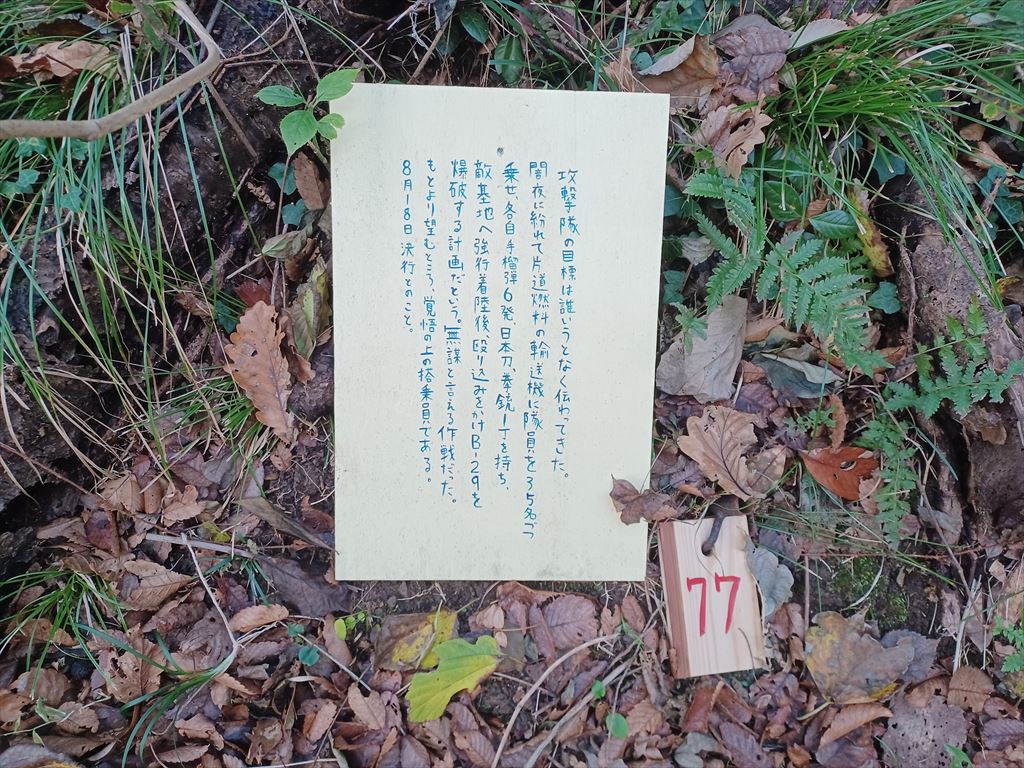 攻撃隊の目標は誰いうとなく伝わってきた。
闇夜に紛れて片道燃料の輸送機に隊員を35名づつ
乗せ、各自手榴弾6発、日本刀、拳銃1丁を持ち、
敵基地へ強行着陸後、殴り込みをかけB-29を
爆破する計画だという。無謀と言える作戦だった。
もとより望むところ、覚悟の上の搭乗員である。
8月18日決行とのこと。
77